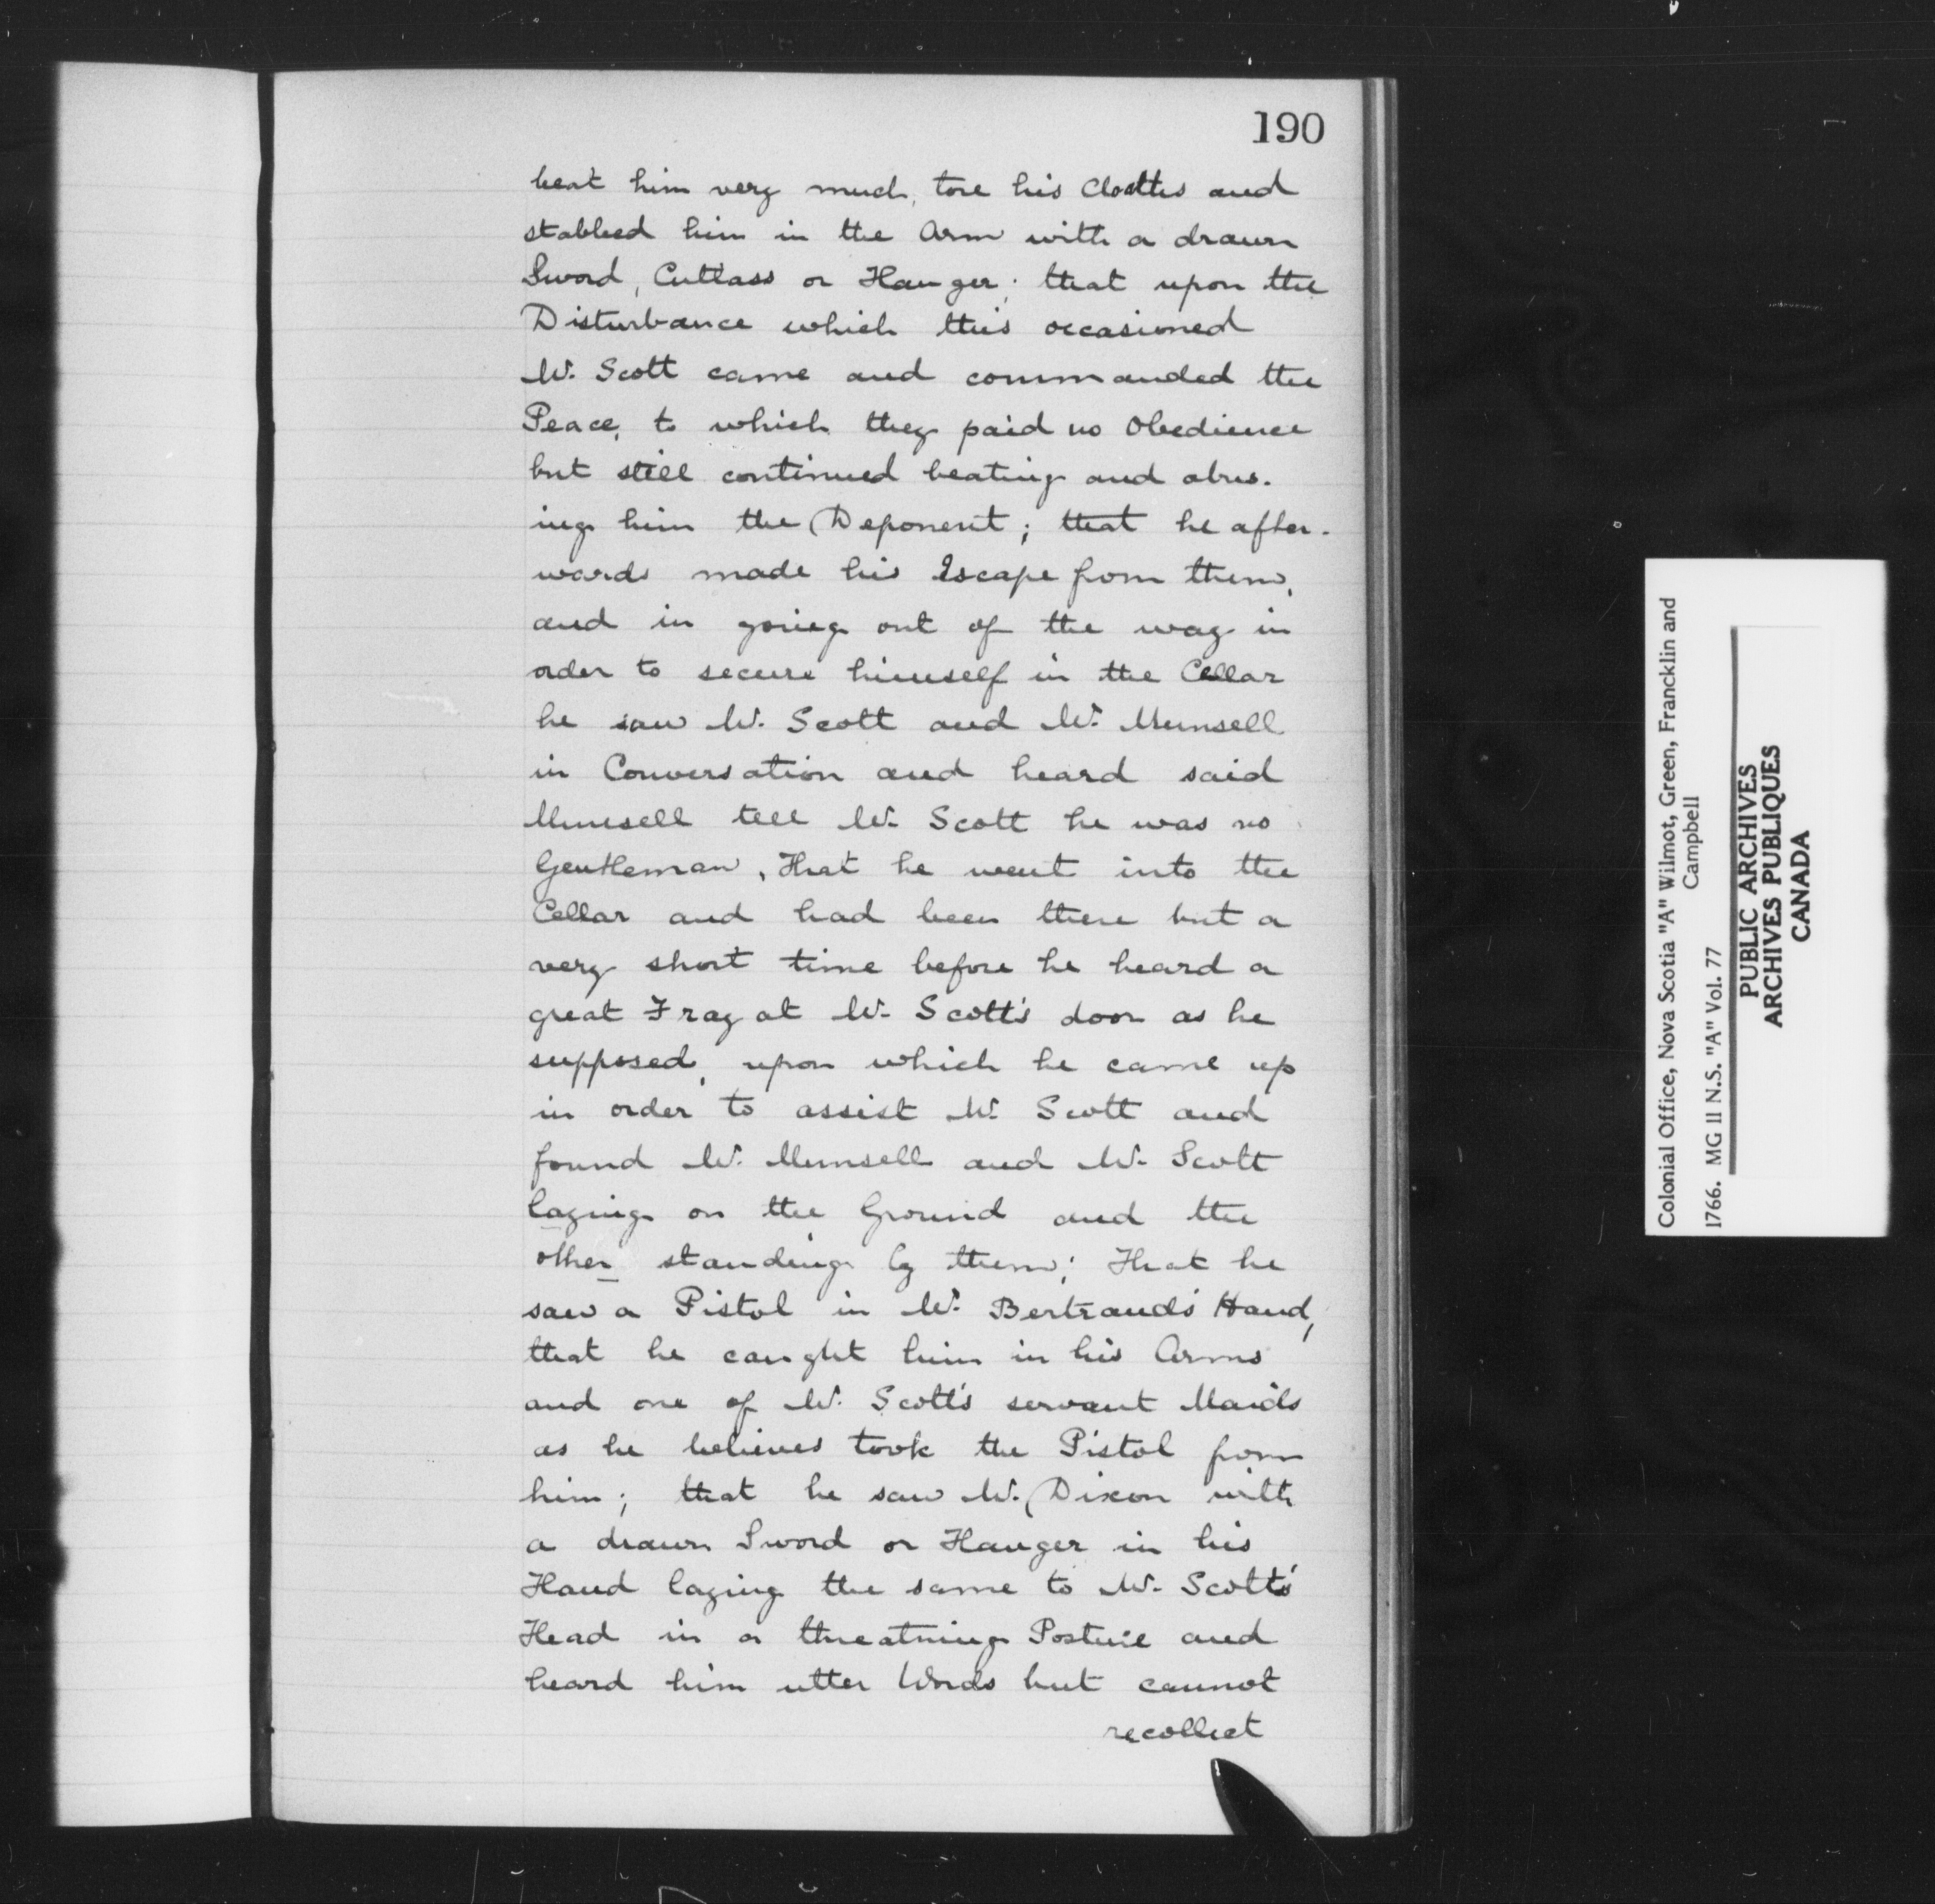 190
beat him very much, tore his Cloaths and
stabbed him in the Arm with a drawn
Sword, Cutlass or Hanger; that upon the
Disturbance which this occasioned
Mr. Scott came and commanded the
Peace, to which they paid no Obedience
but still continued beating and abus-
ing him the Deponent; that he after-
wards made his Escape from them,
and in going out of the way in
order to secure himself in the Cellar
he saw Mr. Scott and Mr. Munsell
in Conversation and heard said
Munsell tell Mr. Scott he was no
Gentleman, That he went into the
Cellar and had been there but a
very short time before he heard a
great Fray at Mr. Scott's door as he
supposed, upon which he came up
in order to assist Mr. Scott and
found Mr. Munsell and Mr. Scott
laying on the Ground and the
other standing by them; That he
saw a Pistol in Mr. Bertrand's Hand,
that he caught him in his Arms
and one of Mr. Scott's servant Maids
as he believes took the Pistol from
him; that he saw Mr. Dixon with
a drawn Sword or Hanger in his
Hand laying the same to Mr. Scott's
Head in a threatning Posture and
heard him utter Words but cannot
recollect
Colonial Office, Nova Scotia "A" Wilmot, Green, Francklin and
Campbell
1766. MG 11 N.S. "A" Vol. 77
PUBLIC ARCHIVES
ARCHIVES PUBLIQUES
CANADA